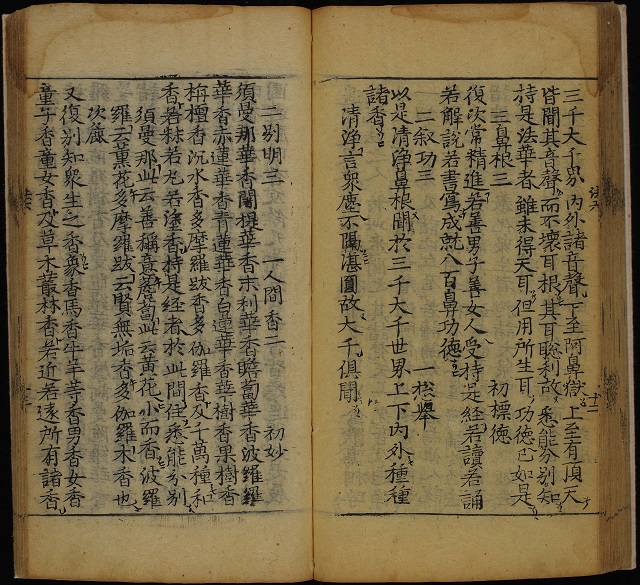 三千大千界 內外諸音聲 下至阿鼻獄 上至有頂天
皆聞其音聲 而不壞耳根 其耳聰利故 悉能分別知
持是法華者 雖未得天耳 但用所生耳 功德已如是
三鼻根三 初標德
復次常精進若善男子善女人受持是經若讀若誦
若解說若書寫成就八百鼻功德
二叙功三 一揔舉
以是清淨鼻根聞於三千大千世界上下內外種種
諸香
清淨言衆塵不隔湛圓故大千俱聞
二別明三 一人間香二 初妙
須曼那華香闍提華香末利華香瞻蔔華香波羅羅
華香赤蓮華香青蓮華香白蓮華香華樹香果樹香
栴檀香沉水香多摩羅跋香多伽羅香及千萬種和
香若秣若丸若塗香持是經者於此間住悉能分別
須曼那此云善稱意瞻蔔此云黃花小而香波羅
羅云薰花多摩羅跋云賢無垢香多伽羅木香也
次麁
又復別知衆生之香象香馬香牛羊等香男香女香
童子香童女香及草木叢林香若近若遠所有諸香